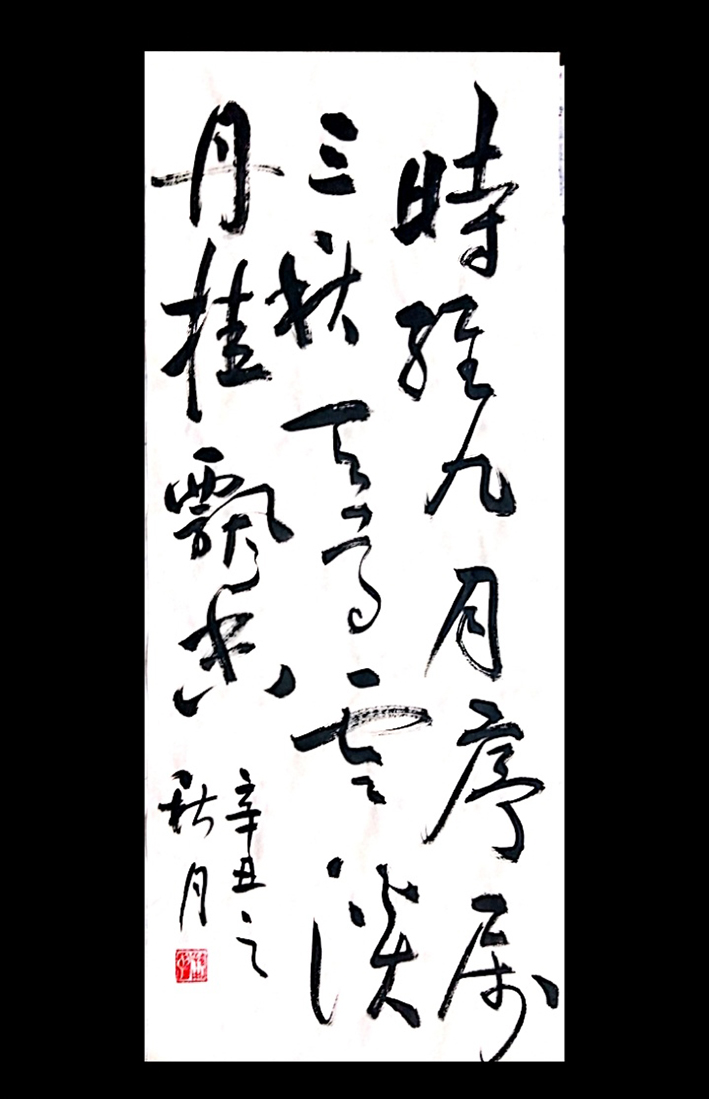 時維九月序属
三秋天高雲淡
丹桂飄香
辛丑之
秋月